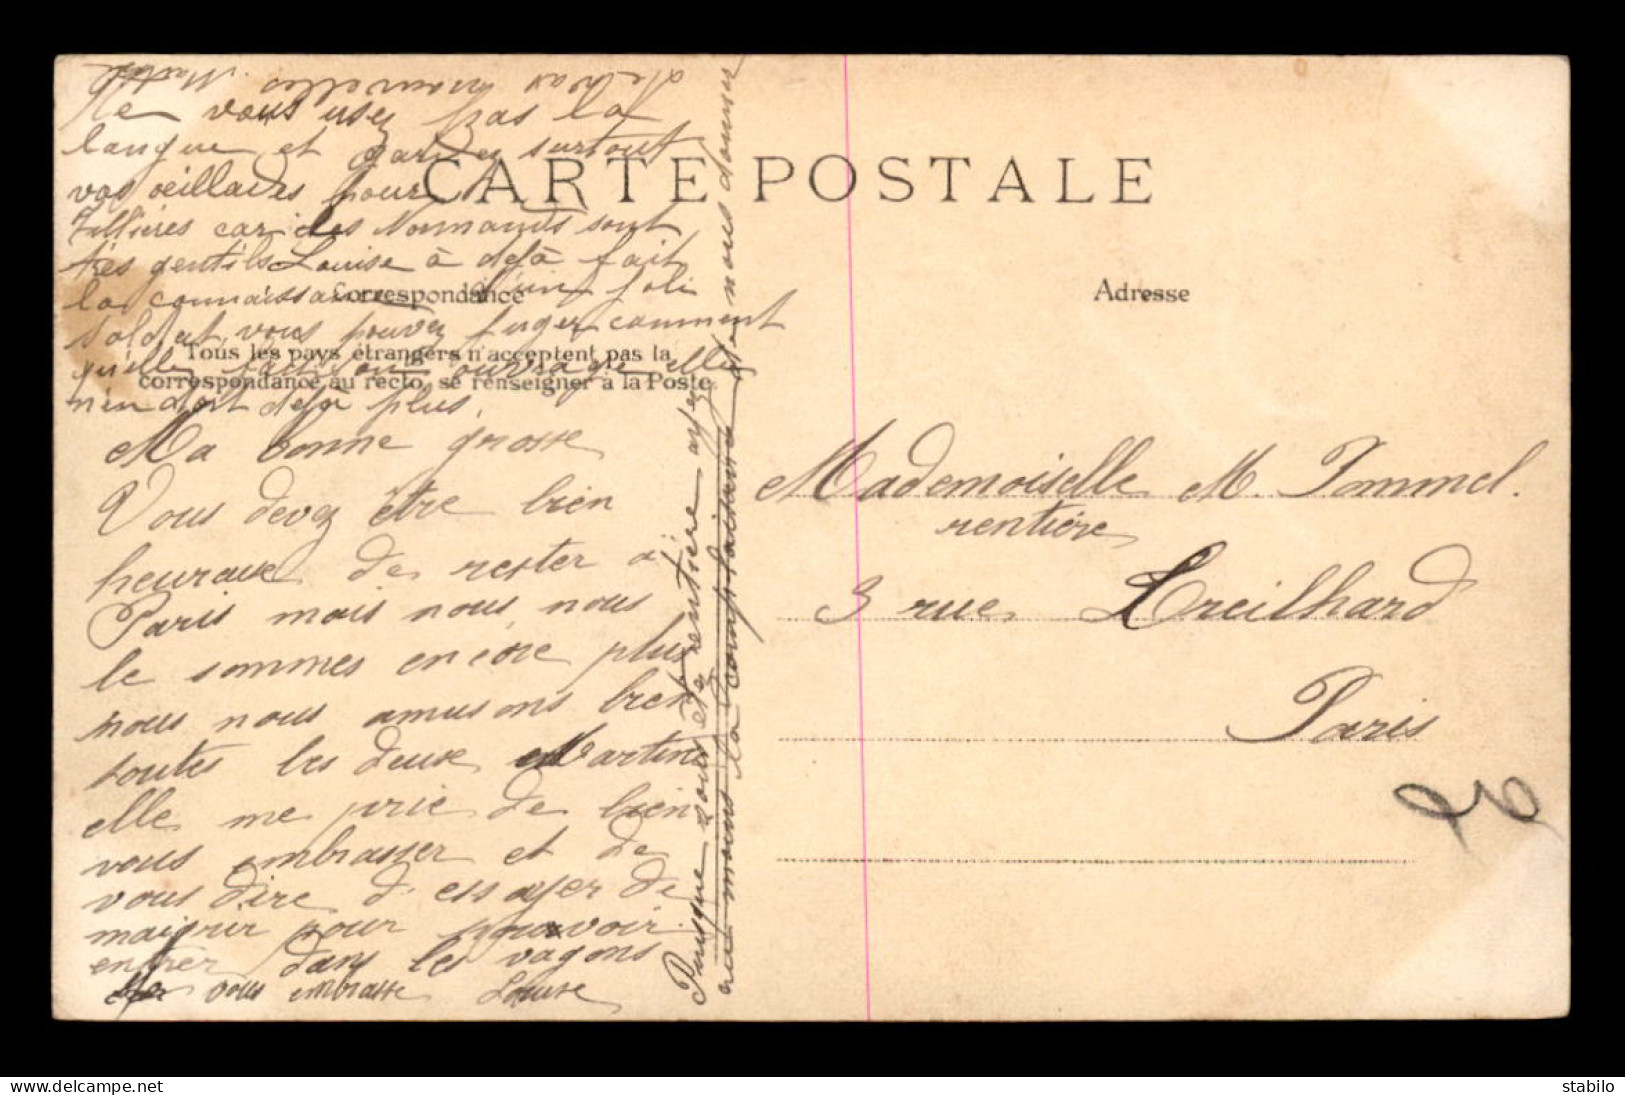 Ne vous usez pas la
langue et gardez surtout
vos oeillades pour
Tillières car les Normands sont
très gentils Louise à dejà fait
la connaissance d'un joli
soldat, vous pouvez juger comment
qu'elle fait son ouvrage elle
n'en doit dejà plus.
Ma bonne grosse
Vous devez être bien
heureuse de rester à
Paris mais nous, nous
le sommes encore plus
nous nous amusons bien
toutes les deux Martine
elle me prie de bien
vous embrasser et de
vous dire d'essayer de
maigrir pour pouvoir
entrer dans les vagons
vous embrasse Louise
Puisque vous êtes rentière ayez
au moins la complaisance de nous donner
de vos nouvelles
CARTE POSTALE
Correspondance
Adresse
Tous les pays étrangers n'acceptent pas la
correspondance au recto, se renseigner à la Poste.
Mademoiselle M. Pommel.
rentière
3 rue Treilhard
Paris
delcampe.net
stabilo